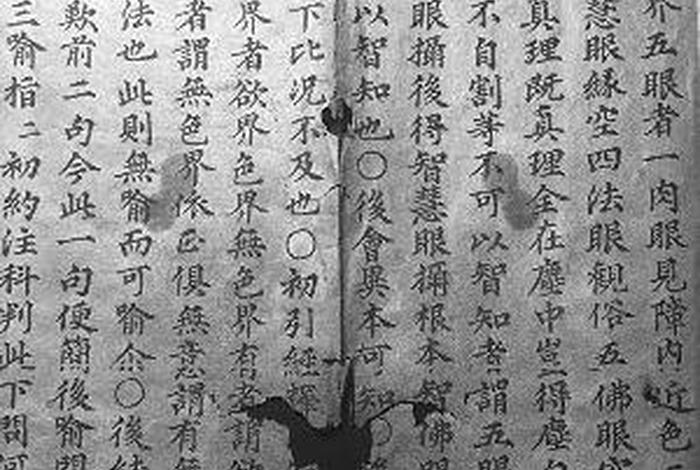 界五眼者一肉眼見障内近色
慧眼緣空四法眼觀俗五佛眼
真理既真理全在塵中豈得塵
不自割等不可以智知者謂五眼
眼攝後得智慧眼攝根本智佛眼
以智知也○後會異本可知○
下比况不及也○初引經釋
界者欲界色界無色界有者謂
者謂無色界依正俱無意謂有無
法也此則無喻而可喻尒○後結
歎前二句今此一句便簡後喻問
三喻指二初約注科判此下問